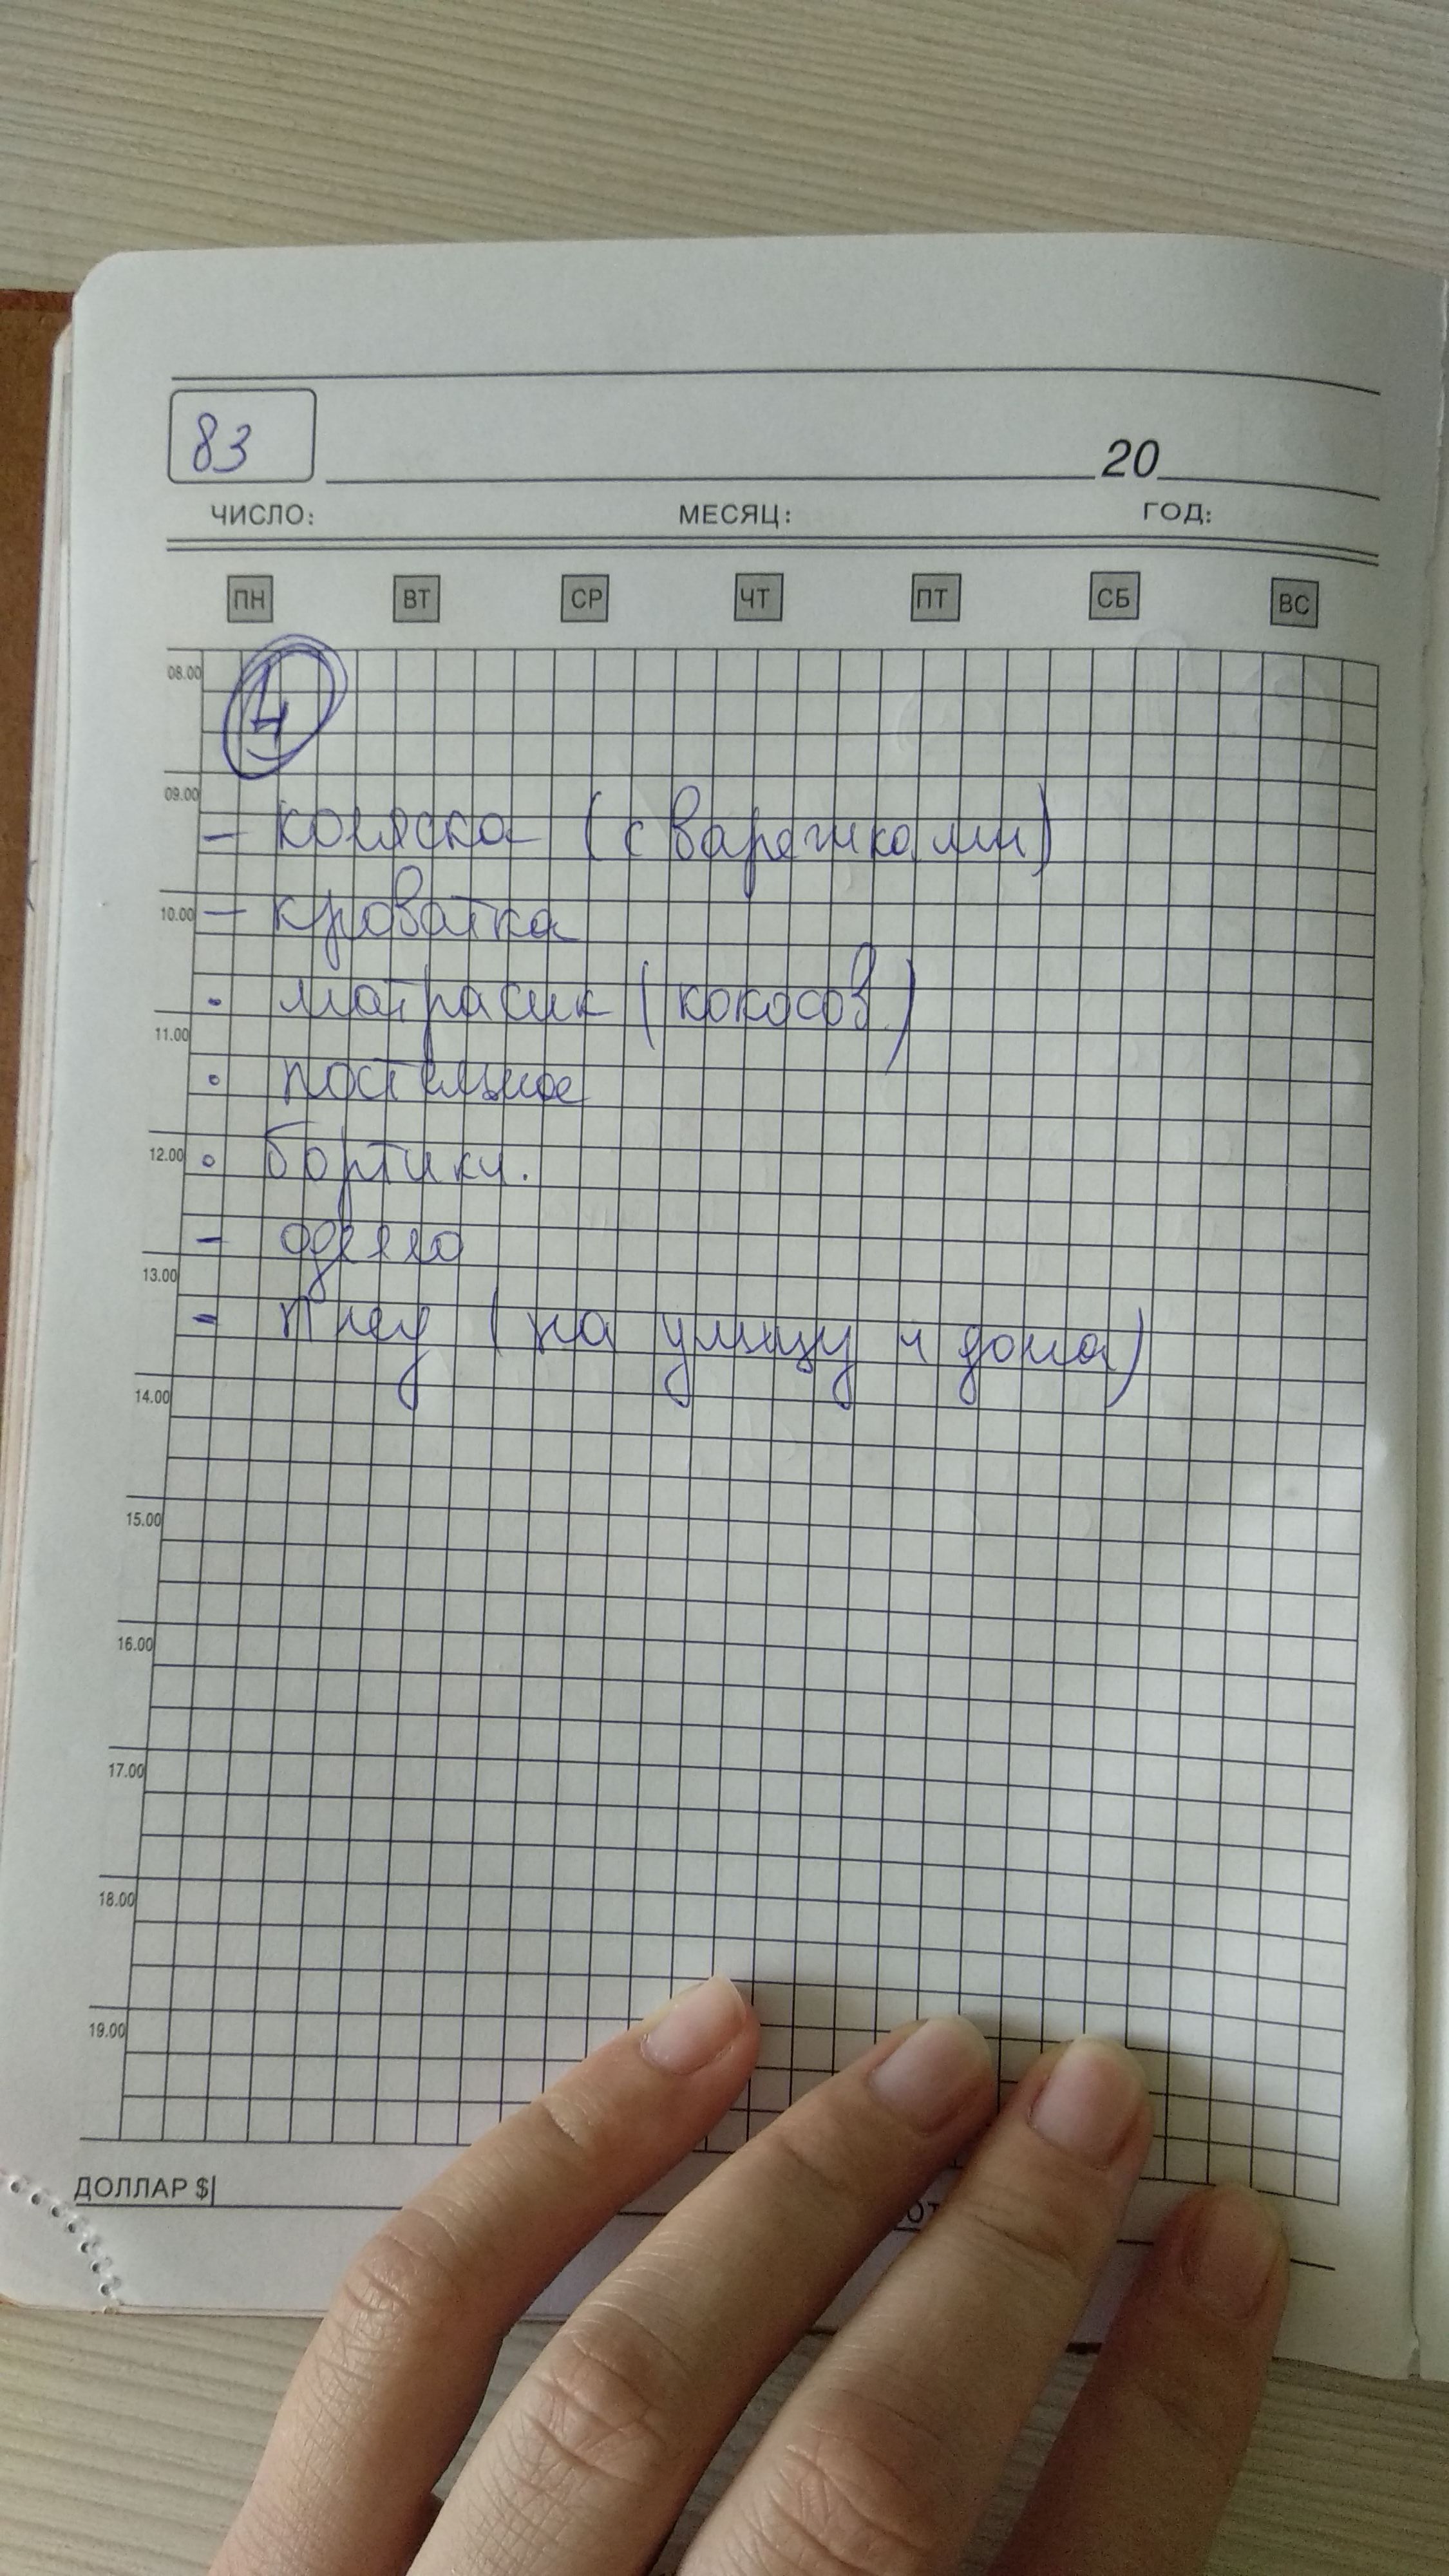 83
20
ЧИСЛО: МЕСЯЦ: ГОД:
ПН ВТ СР ЧТ ПТ СБ ВС
08.00
4
09.00
- коляска (с варежками)
10.00 - кроватка
• матрасик (кокосов)
11.00
• постельное
12.00 • бортики.
- одеяло
13.00
- плед (на улицу и дома)
14.00
15.00
16.00
17.00
18.00
19.00
ДОЛЛАР $